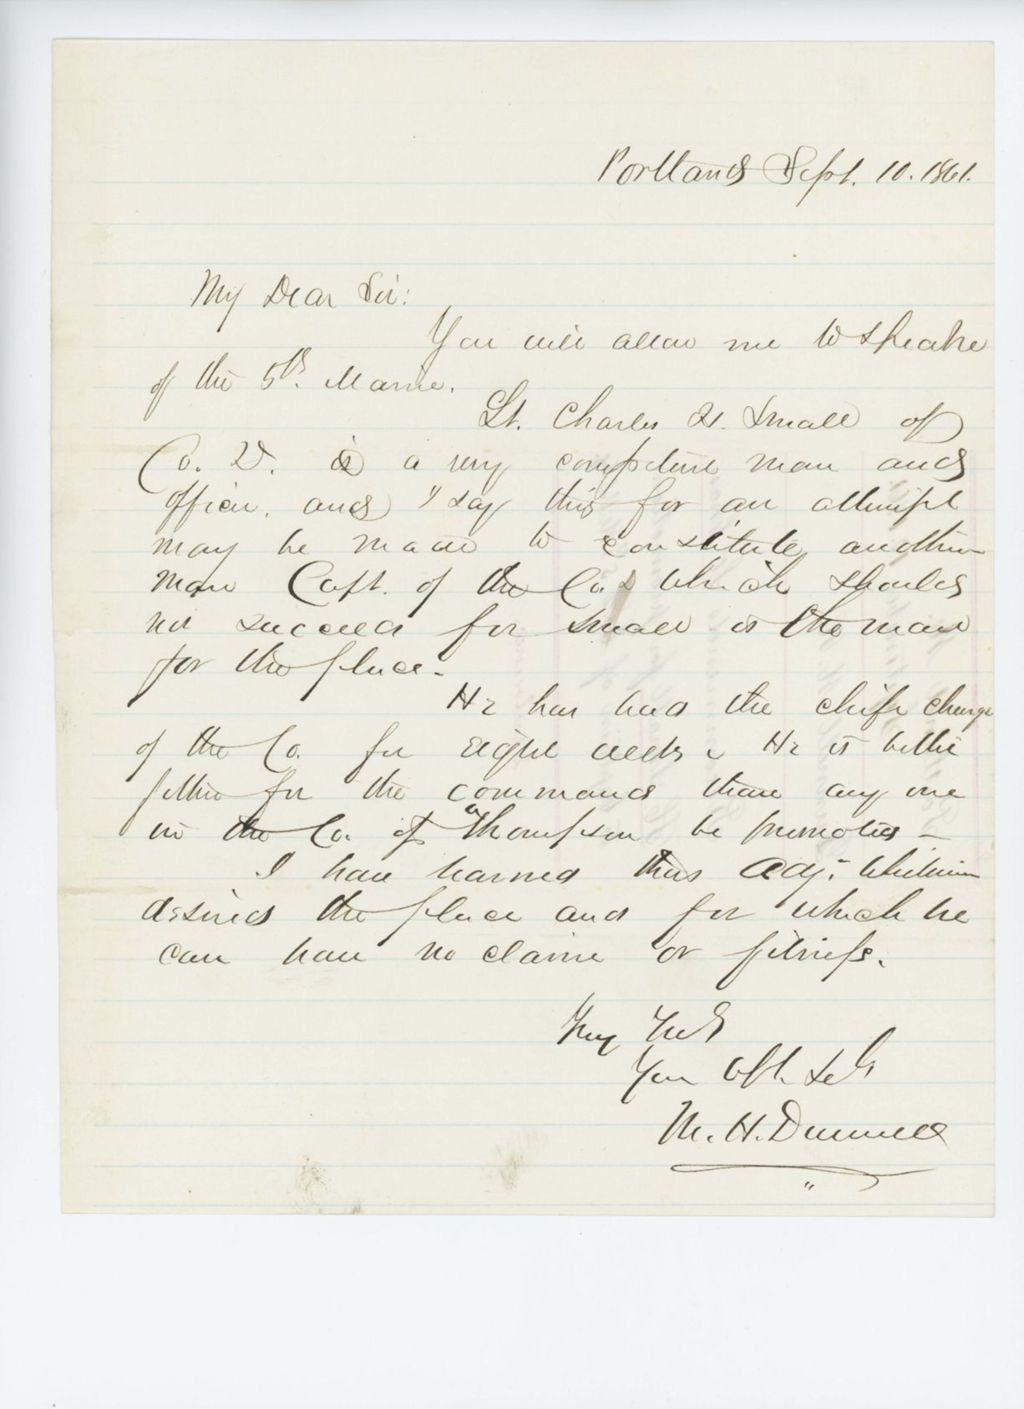 Portland Sept. 10. 1861.
My Dear Sir:
You will allow me to speake
of the 5th. Maine.
Lt. Charles H. Small of
Co. D. is a very competent man and
officer, and I say this for an attempt
may be made to constitute another
man Capt. of the Co. which should
not succeed for Small is the man
for the place.
He has had the chief charge
of the Co. for eight weeks & He is better
fitted for the command than any one
in the Co. if Thompson be promoted -
I have learned that Adj. Whitman
desired the place and for which he
can have no claim or fitness.
Very Truly
Your Obt. Sevt
M. H. Dunnell